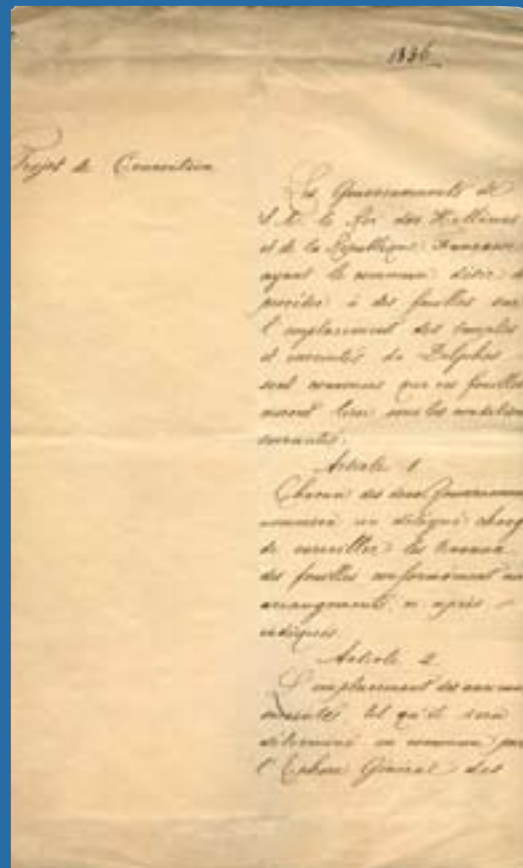 1886
Projet de Convention
Les Gouvernements de
S. M. le Roi des Hellènes
et de la République Française
ayant le commun désir de
procéder à des fouilles sur
l'emplacement des temples
et enceintes de Delphes
sont convenus que ces fouilles
auront lieu sous les conditions
suivantes.
Article 1
Chacun des deux Gouvernements
nommera un délégué chargé
de surveiller les travaux
des fouilles conformément aux
arrangements ci après
indiqués.
Article 2
L'emplacement des
tel qu'il sera
déterminé en commun par
l'Ephore Général des